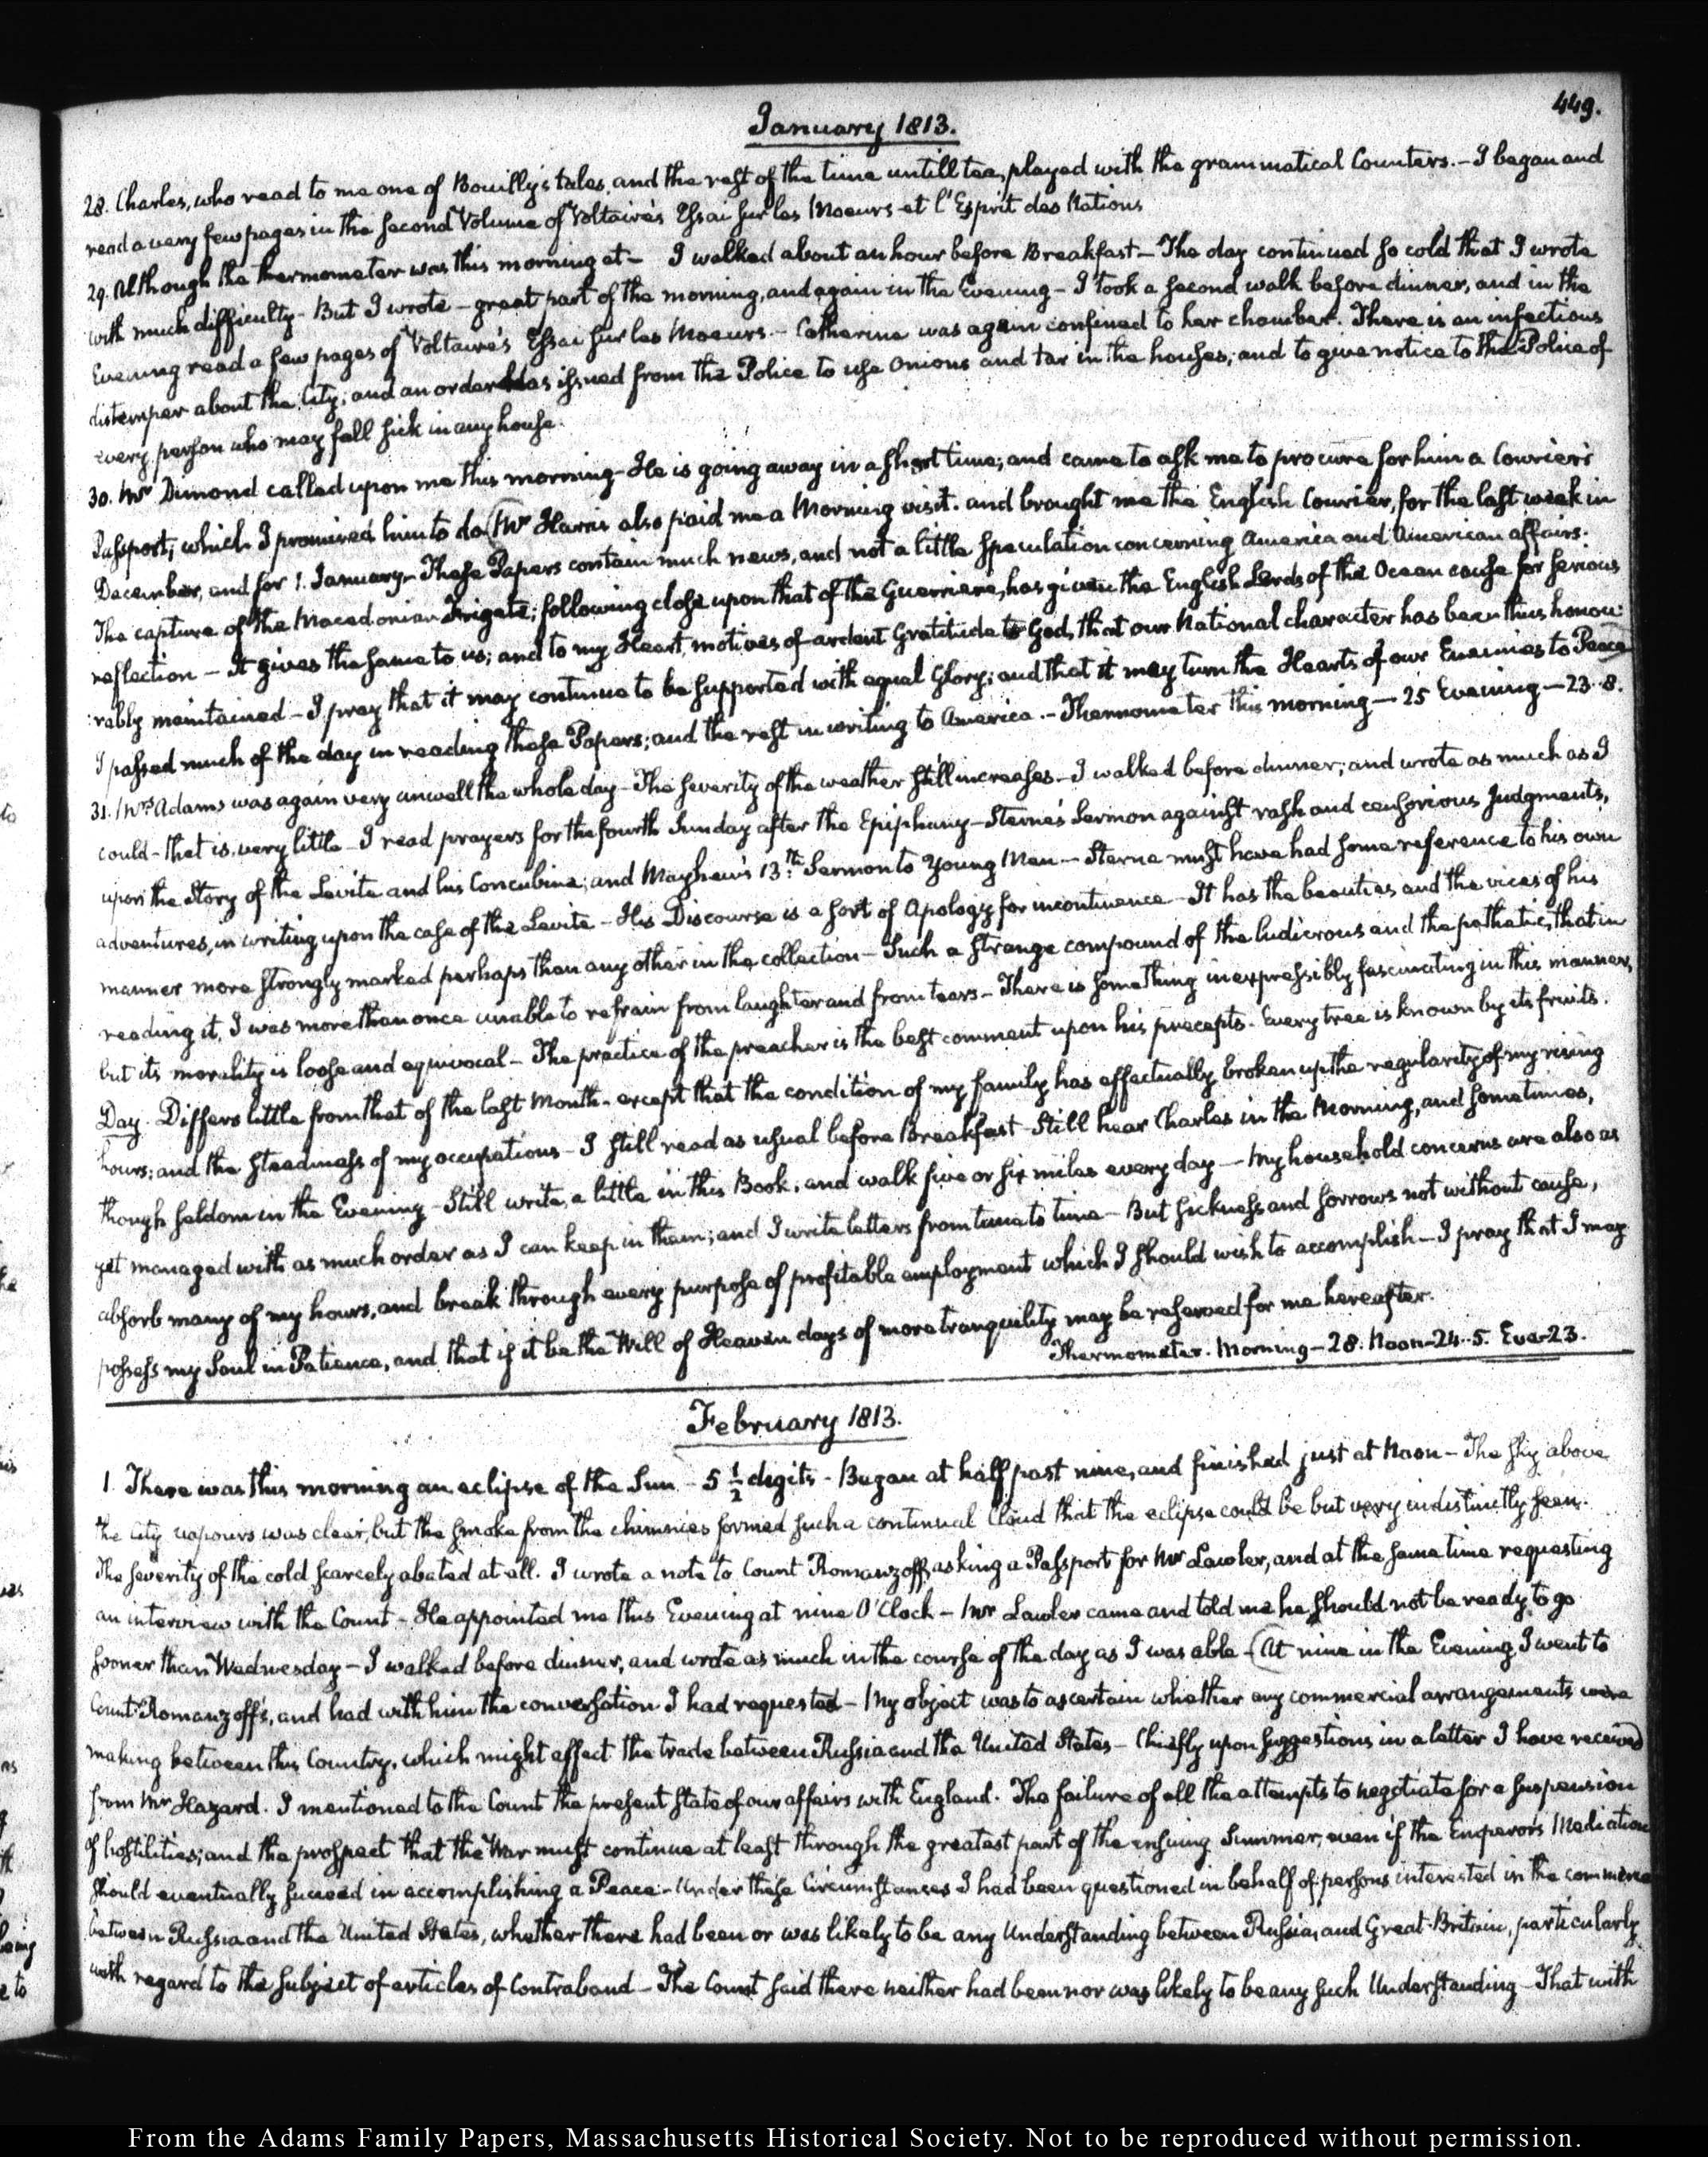 449.
January 1813.
28. Charles, who read to me one of Bouilly's tales, and the rest of the time untill tea, played with the grammatical Counters.—I began and
read a very few pages in the second Volume of Voltaire's Essai sur les Moeurs et l'Esprit des Nations
29. Although the thermometer was this morning at— I walked about an hour before Breakfast—The day continued so cold that I wrote
with much difficulty—But I wrote—great part of the morning, and again in the Evening—I took a second walk before dinner, and in the
Evening read a few pages of Voltaire's Essai sur les Moeurs.—Catherine was again confined to her chamber. There is an infectious
distemper about the City; and an order was issued from the Police to use Onions and tar in the houses; and to give notice to the Police of
every person who may fall sick in any house.
30. Mr Dimond called upon me this morning—He is going away in a short time; and came to ask me to procure for him a Courier's
Passport; which I promised him to do (Mr Harris also paid me a Morning visit. and brought me the English Courier, for the last week in
December, and for 1. January—These Papers contain much news, and not a little speculation concerning America and American affairs.
The capture of the Macedonian Frigate; following close upon that of the Guerriere, has given the English Lords of the Ocean cause for serious
reflection—It gives the same to us; and to my Heart, motives of ardent Gratitude to God, that our National character has been thus honou:
:rably maintained—I pray that it may continue to be supported with equal Glory; and that it may turn the Hearts of our Enemies to Peace
I passed much of the day in reading these Papers; and the rest in writing to America.—Thermometer this morning—25 Evening—23..8.
31. Mrs Adams was again very unwell the whole day—The severity of the weather still increases—I walked before dinner; and wrote as much as I
could—that is, very little—I read prayers for the fourth Sunday after the Epiphany—Sterne's Sermon against rash and censorious Judgments,
upon the Story of the Levite and his Concubine; and Mayhew's 13th. Sermon to Young Men—Sterne must have had some reference to his own
adventures, in writing upon the case of the Levite—His Discourse is a sort of Apology for incontinence—It has the beauties and the vices of his
manner more strongly marked perhaps than any other in the collection—Such a strange compound of the ludicrous and the pathetic, that in
reading it, I was more than once unable to refrain from laughter and from tears—There is something inexpressibly fascinating in this manner,
but its morality is loose and equivocal—The practice of the preacher is the best comment upon his precepts. Every tree is known by its fruits.
Day. Differs little from that of the last Month—except that the condition of my family has effectually broken up the regularity of my rising
hours; and the steadiness of my occupations—I still read as usual before Breakfast—Still hear Charles in the Morning, and sometimes,
though seldom in the Evening—Still write, a little in this Book, and walk five or six miles every day—My household concerns are also as
yet managed with as much order as I can keep in them; and I write letters from time to time—But sickness and sorrows not without cause,
absorb many of my hours, and break through every purpose of profitable employment which I should wish to accomplish—I pray that I may
possess my Soul in Patience, and that if it be the Will of Heaven days of more tranquility may be reserved for me hereafter.
Thermometer. Morning—28. Noon—24..5. Eve—23.
February 1813.
1. There was this morning an eclipse of the Sun—5 1/2 digits—Began at half past nine, and finished just at Noon—The sky above
the City vapours was clear, but the smoke from the chimnies formed such a continual Cloud that the eclipse could be but very indistinctly seen.
The severity of the cold scarcely abated at all. I wrote a note to Count Romanzoff, asking a Passport for Mr Lawler, and at the same time requesting
an interview with the Count—He appointed me this Evening at nine O'Clock—Mr Lawler came and told me he should not be ready to go
sooner than Wednesday—I walked before dinner, and wrote as much in the course of the day as I was able—(At nine in the Evening I went to
Count Romanzoff's, and had with him the conversation I had requested—My object was to ascertain whether any commercial arrangements were
making between this Country, which might affect the trade between Russia and the United States—Chiefly upon suggestions in a letter I have received)
from Mr Hazard. I mentioned to the Count the present state of our affairs with England. The failure of all the attempts to negotiate for a suspension
of hostilities; and the prospect that the War must continue at least through the greatest part of the ensuing Summer, even if the Emperor's Mediation
should eventually succeed in accomplishing a Peace—Under these Circumstances I had been questioned in behalf of persons interested in the commerce
between Russia and the United States, whether there had been or was likely to be any Understanding between Russia, and Great-Britain, particularly
with regard to the subject of articles of Contraband—The Count said there neither had been nor was likely to be any such Understanding—That with
From the Adams Family Papers, Massachusetts Historical Society. Not to be reproduced without permission.